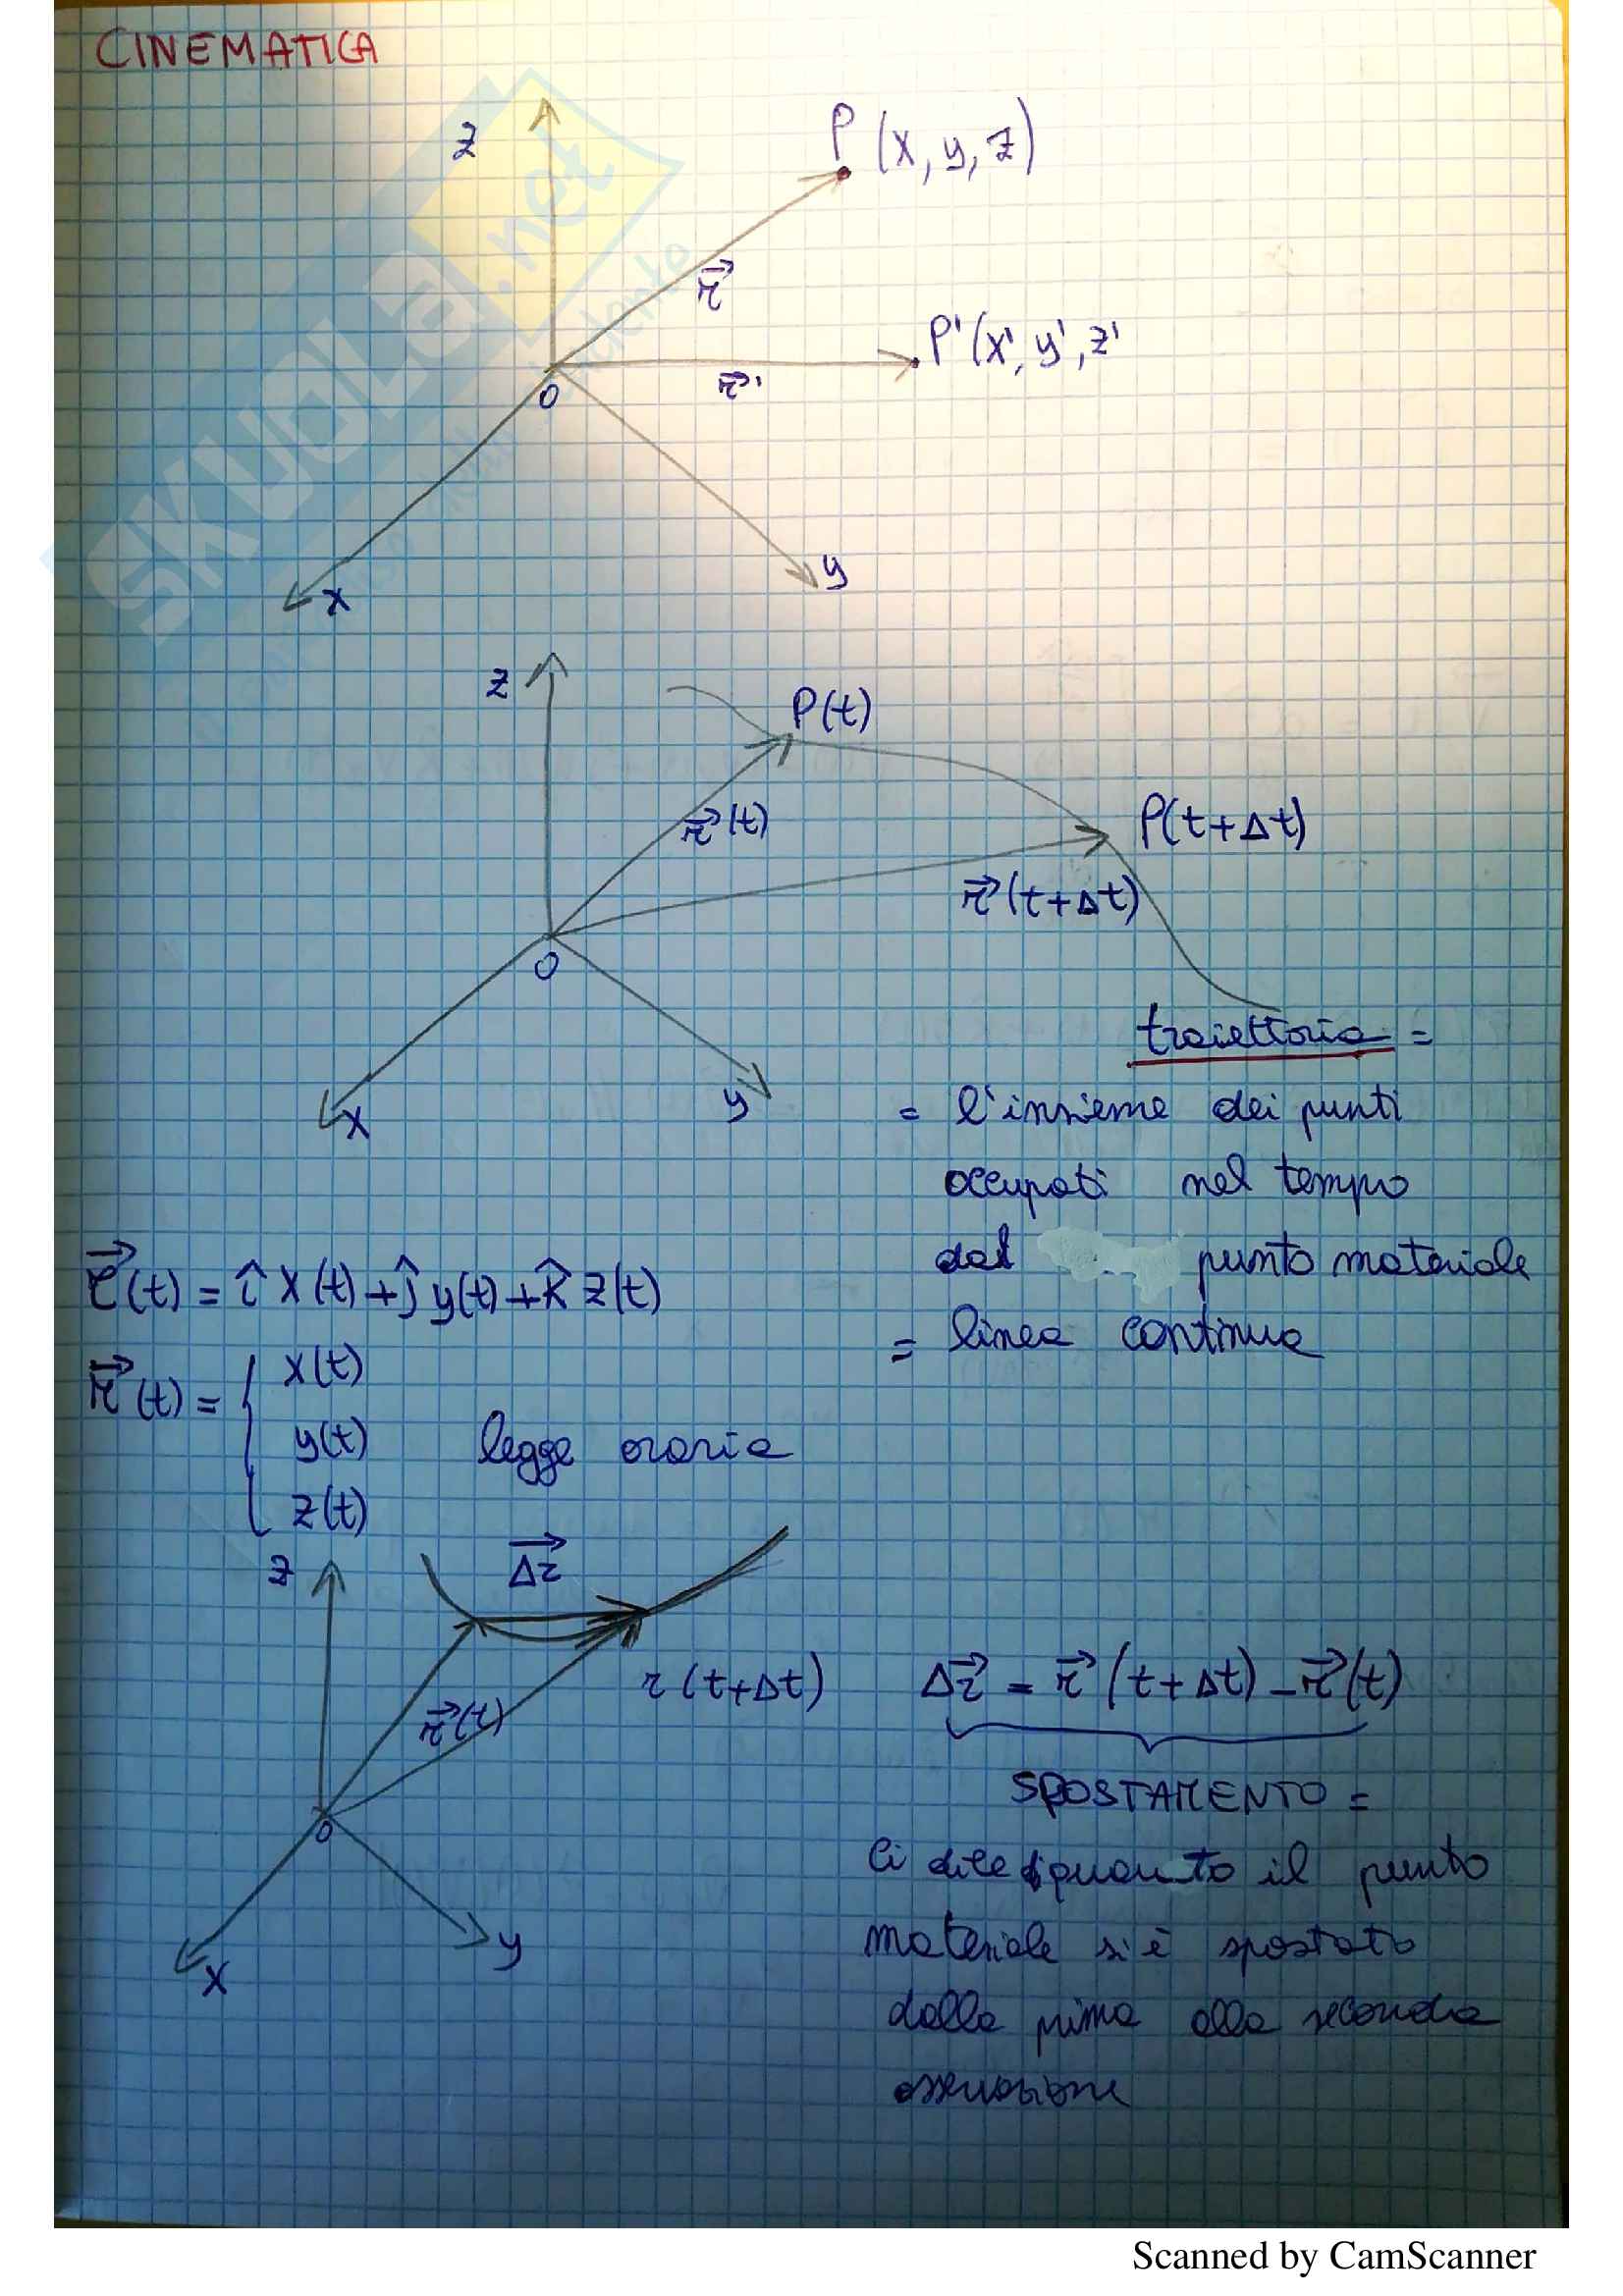 CINEMATICA
z
P (x, y, z)
r⃗
P'(x', y', z'
r⃗'
O
x
y
z
P(t)
r⃗(t)
P(t+Δt)
r⃗(t+Δt)
O
x
y
traiettoria =
= l'insieme dei punti
occupati nel tempo
dal punto materiale
= linea continua
r⃗(t) = î x(t) + ĵ y(t) + k̂ z(t)
r⃗(t) = { x(t)
y(t) legge oraria
z(t)
z
Δr⃗
r(t+Δt)
r⃗(t)
O
x
y
Δr⃗ = r⃗(t+Δt) - r⃗(t)
SPOSTAMENTO =
Ci dice quanto il punto
materiale si è spostato
dalla prima alla seconda
SKUOLA.net
Scanned by CamScanner